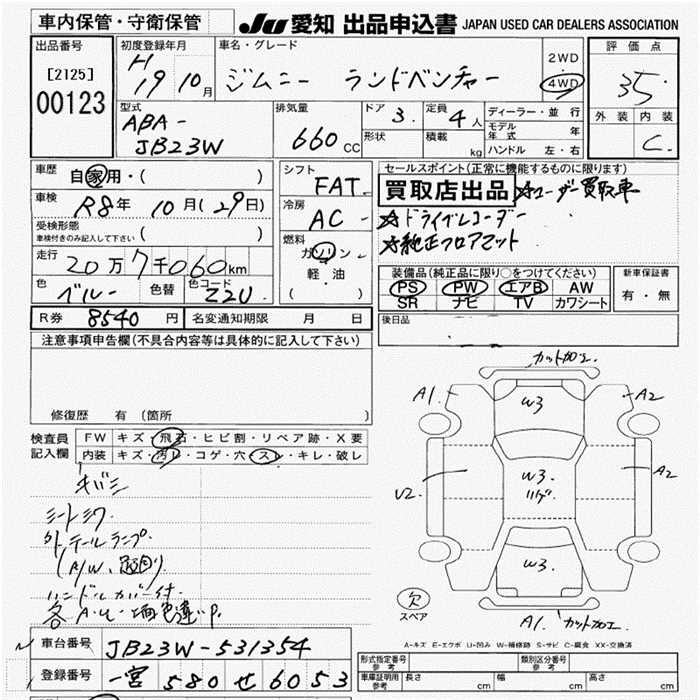 車内保管・守衛保管
JU 愛知 出品申込書 JAPAN USED CAR DEALERS ASSOCIATION
出品番号
[2125]
00123
初度登録年月
H19 10月
車名・グレード
ジムニー ランドベンチャー
2WD
4WD
評価点
3.5
外装 内装
C
型式
ABA-
JB23W
排気量
660 CC
ドア 3
定員 4人
形状
積載 kg
ディーラー・並行
モデル年式 年
ハンドル 左・右
車歴 自家用・( )
車検 R8年 10月(29日)
受検形態
車検付きのみ記入して下さい ( )
走行 20万7千060km
色 ベルー 色替 色コード Z2U
R券 8540円 名変通知期限 月 日
シフト
FAT
冷房
AC
燃料
ガソリン
軽・油
( )
セールスポイント(正常に機能するものに限ります)
買取店出品 ☆ユーザー買取車
☆ドライブレコーダー
☆純正フロアマット
装備品(純正品に限り○をつけてください)
PS PW エアB AW
SR ナビ TV カワシート
新車保証書
有・無
後日品
注意事項申告欄(不具合内容等は具体的に記入して下さい)
修復歴 有(箇所 )
検査員記入欄
FW キズ・飛石・ヒビ割・リペア跡・X要
内装 キズ・汚レ・コゲ・穴・スレ・キレ・破レ
キバミ
シートシワ
外テールランプ
ハンドルカバー付
カット加工.
A1.
W3
A2
U2.
W3.
A2
W3.
欠
スペア
A1. カット加工.
A-キズ E-エクボ U-凹み W-補修跡 S-サビ C-腐食 XX-交換済
車台番号 JB23W-531354
登録番号 一宮 580 せ 6053
形式指定番号
参考
類別区分番号
参考
車庫証明用
参考
長さ cm 幅 cm 高さ cm